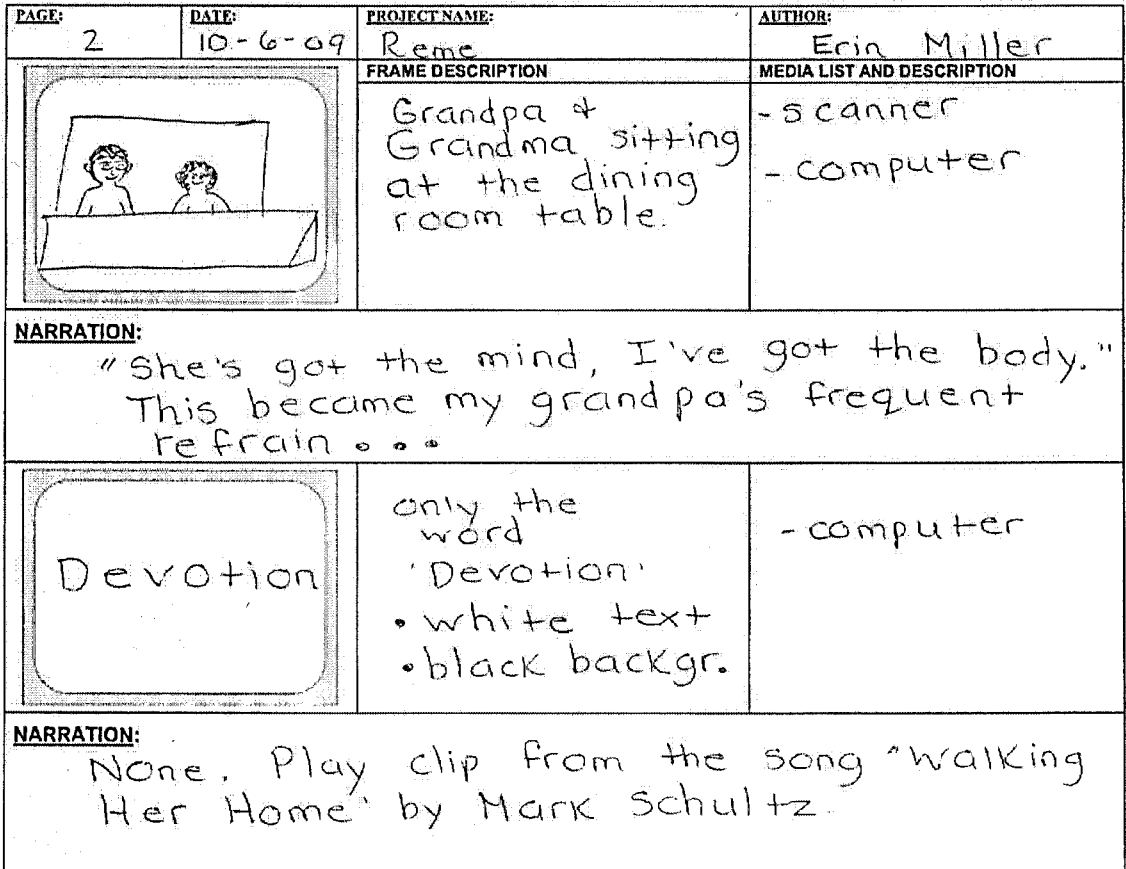 PAGE:
2
DATE:
10-6-09
PROJECT NAME:
Reme
AUTHOR:
Erin Miller
FRAME DESCRIPTION
MEDIA LIST AND DESCRIPTION
Grandpa &
Grandma sitting
at the dining
room table.
- scanner
- computer
NARRATION:
"She's got the mind, I've got the body."
This became my grandpa's frequent
refrain...
Devotion
only the
word
'Devotion'
• white text
• black backgr.
- computer
NARRATION:
None. Play clip from the song "Walking
Her Home" by Mark Schultz.